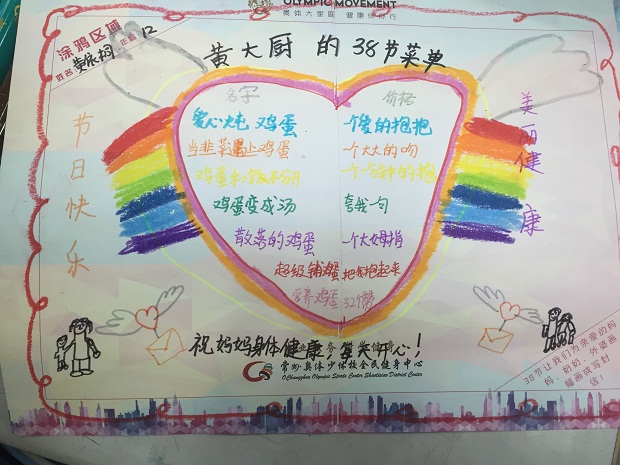 OLYMPIC MOVEMENT
奥体大家庭 健康伴你行
涂鸦区域
姓名
年龄 12
黄大厨的38节菜单
名字 价格
爱心炖鸡蛋 一个爱的抱抱
当韭菜遇上鸡蛋 一个大大的吻
鸡蛋和饭不分开
鸡蛋变成汤 夸我一句
散落的鸡蛋 一个大姆指
超级 把我抱起来
营养鸡蛋 32个赞
节日快乐
美丽健康
祝妈妈身体健康,每天开心!
常州奥体少体校全民健身中心
Changzhou Olympic Sports Center Shaotixiao District Center
38节让我们为亲爱的妈
妈、奶奶、外婆画
幅画或写封
信!